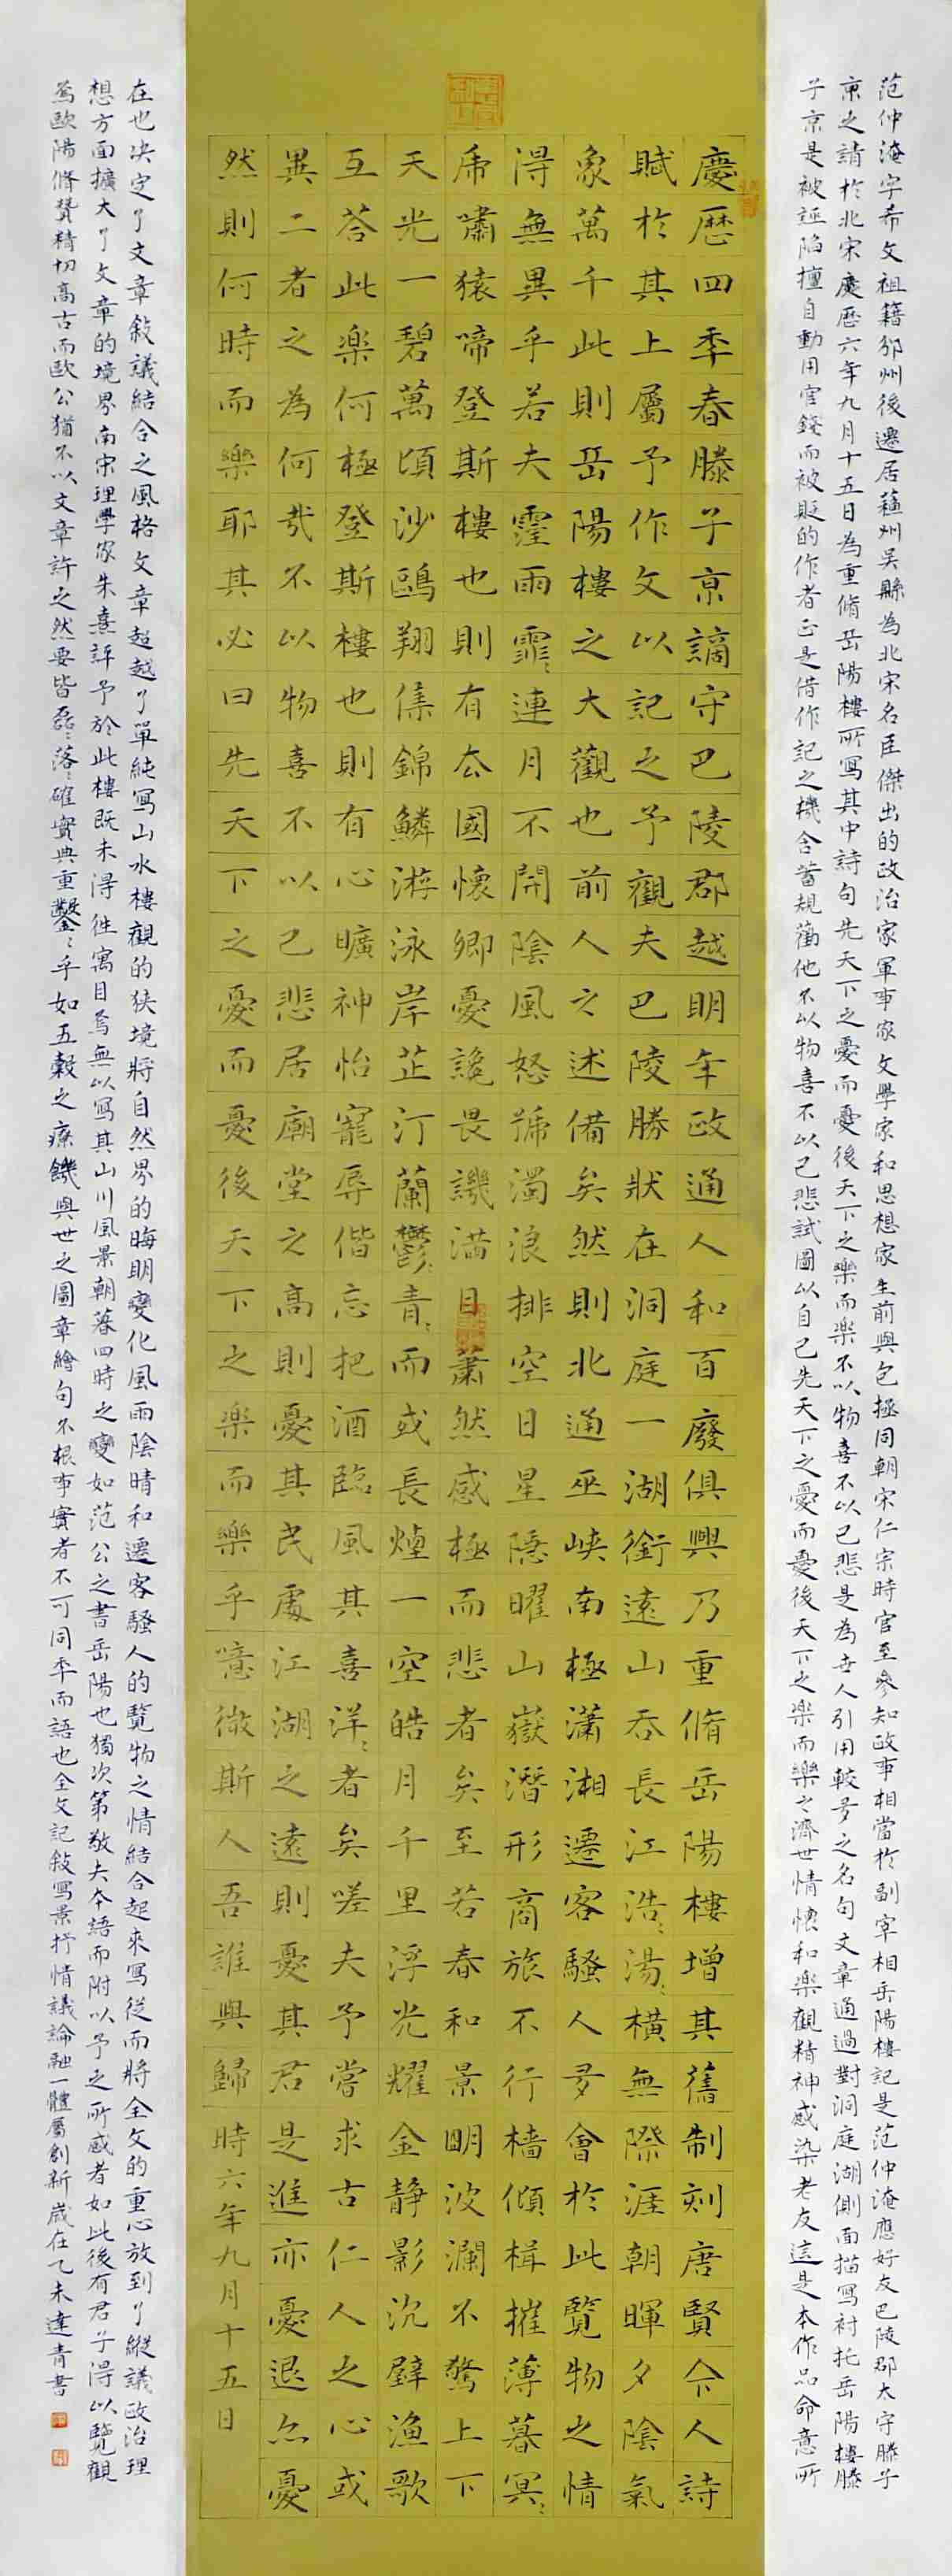 范仲淹字希文祖籍邠州後遷居蘇州吳縣為北宋名臣傑出的政治家軍事家文學家和思想家生前與包拯同朝宋仁宗時官至參知政事相當於副宰相岳陽樓記是范仲淹應好友巴陵郡太守滕子
京之請於北宋慶曆六年九月十五日為重脩岳陽樓所寫其中詩句先天下之憂而憂後天下之樂而樂不以物喜不以己悲是為世人引用較多之名句文章通過對洞庭湖側面描寫襯托岳陽樓滕
子京是被誣陷擅自動用官錢而被貶的作者正是借作記之機含蓄規勸他不以物喜不以己悲試圖以自己先天下之憂而憂後天下之樂而樂之濟世情懷和樂觀精神感染老友這是本作品命意所
慶曆四季春滕子京謫守巴陵郡越明年政通人和百廢俱興乃重脩岳陽樓增其舊制刻唐賢今人詩
賦於其上屬予作文以記之予觀夫巴陵勝狀在洞庭一湖銜遠山吞長江浩〻湯〻橫無際涯朝暉夕陰氣
象萬千此則岳陽樓之大觀也前人之述備矣然則北通巫峽南極瀟湘遷客騷人多會於此覽物之情
得無異乎若夫霪雨霏〻連月不開陰風怒號濁浪排空日星隱曜山嶽潛形商旅不行檣傾楫摧薄暮冥〻
虎嘯猿啼登斯樓也則有去國懷鄉憂讒畏譏滿目蕭然感極而悲者矣至若春和景明波瀾不驚上下
天光一碧萬頃沙鷗翔集錦鱗游泳岸芷汀蘭鬱〻青〻而或長煙一空皓月千里浮光耀金靜影沉璧漁歌
互答此樂何極登斯樓也則有心曠神怡寵辱偕忘把酒臨風其喜洋〻者矣嗟夫予嘗求古仁人之心或
異二者之為何哉不以物喜不以己悲居廟堂之高則憂其民處江湖之遠則憂其君是進亦憂退亦憂
然則何時而樂耶其必曰先天下之憂而憂後天下之樂而樂乎噫微斯人吾誰與歸時六年九月十五日
在也決定了文章敘議結合之風格文章超越了單純寫山水樓觀的狹境將自然界的晦明變化風雨陰晴和遷客騷人的覽物之情結合起來寫從而將全文的重心放到了縱議政治理
想方面擴大了文章的境界南宋理學家朱熹評予於此樓既未得往寓目焉無以寫其山川風景朝暮四時之變如范公之書岳陽也獨次第敬夫本語而附以予之所感者如此後有君子得以覽觀
焉歐陽脩贊精切高古而歐公猶不以文章許之然要皆磊〻落〻確實典重鑿〻乎如五穀之療饑與世之圖章繪句不根事實者不可同年而語也全文記敘寫景抒情議論融一體屬創新歲在乙未達青書